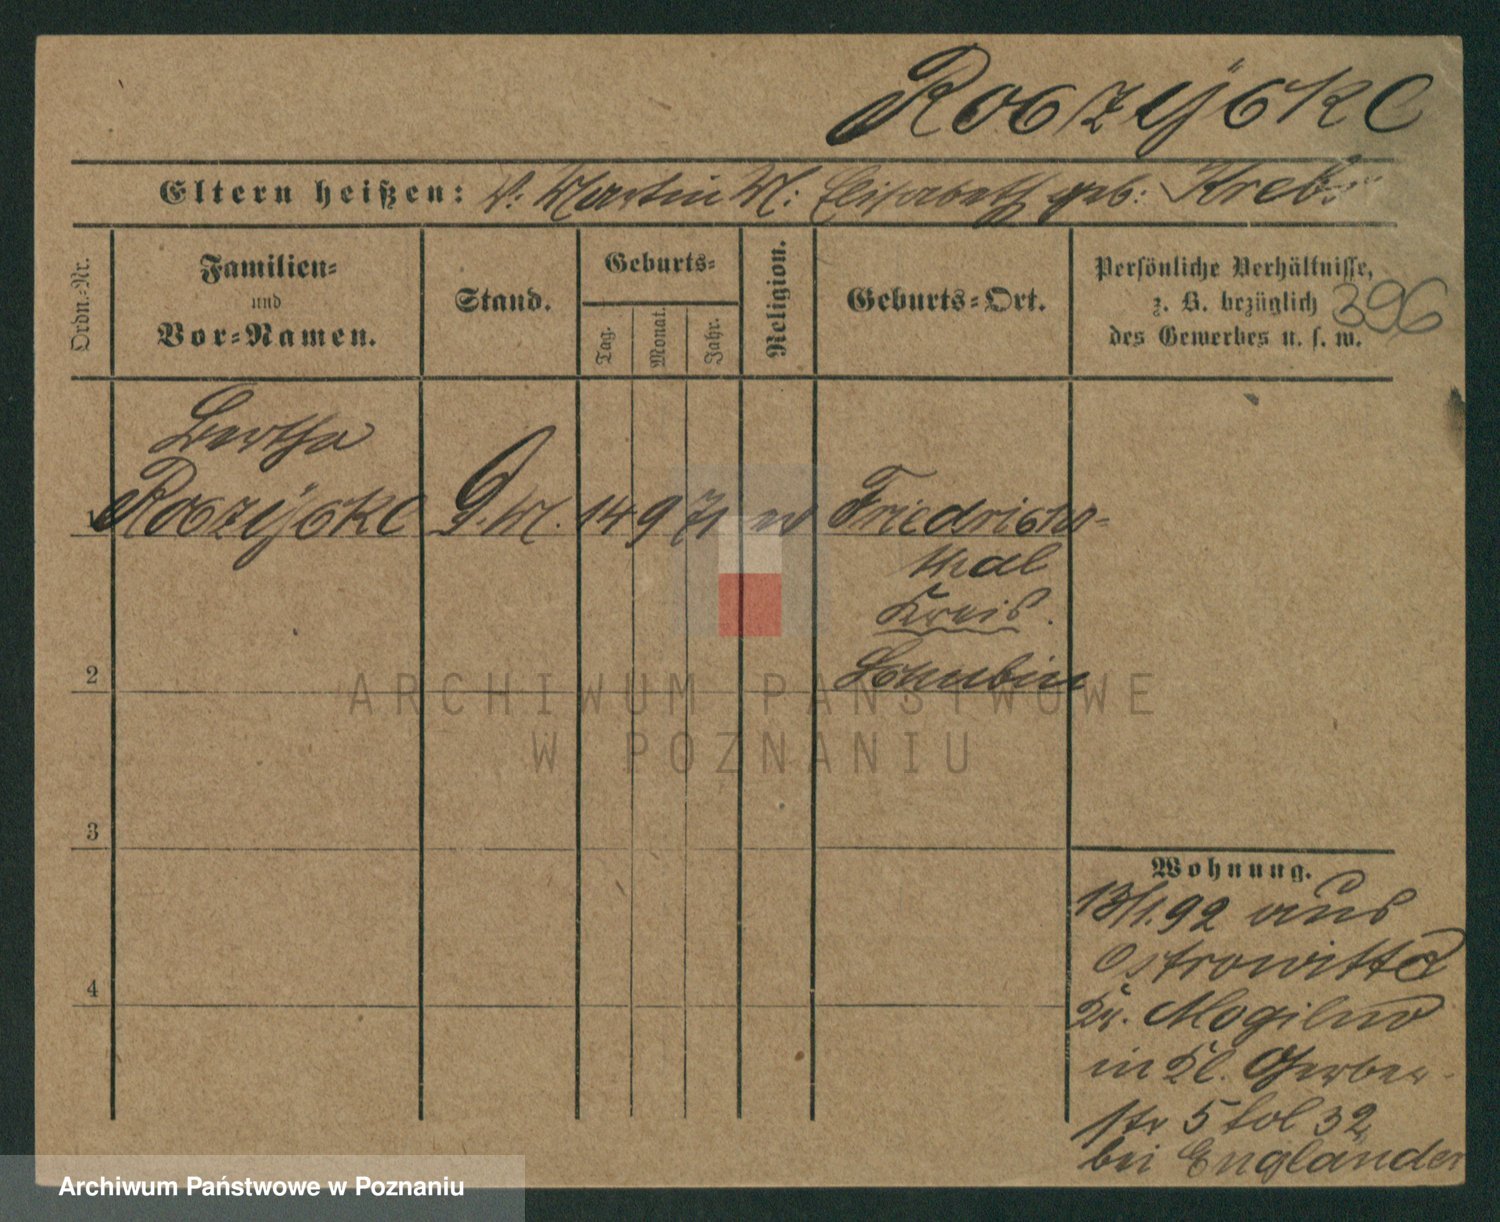 Roczÿcke
Eltern heißen: V. Martin M: Elisabeth geb: Krebs
Ordn.-Nr.
Familien-
und
Vor-Namen.
Stand.
Geburts-
Tag.
Monat.
Jahr.
Religion.
Geburts-Ort.
Persönliche Verhältnisse,
z. B. bezüglich
des Gewerbes u. s. w.
396
Bertha
1 Roczÿcke D. M. 14 9 71 ev Friedrichs-
thal
Kreis
2 Schubin
3
4
Wohnung.
13/1.92 aus
Ostrowitte
Kr. Mogilno
in Kl. Gerber-
str 5 fol 32
bei Engländer
ARCHIWUM PAŃSTWOWE
W POZNANIU
Archiwum Państwowe w Poznaniu